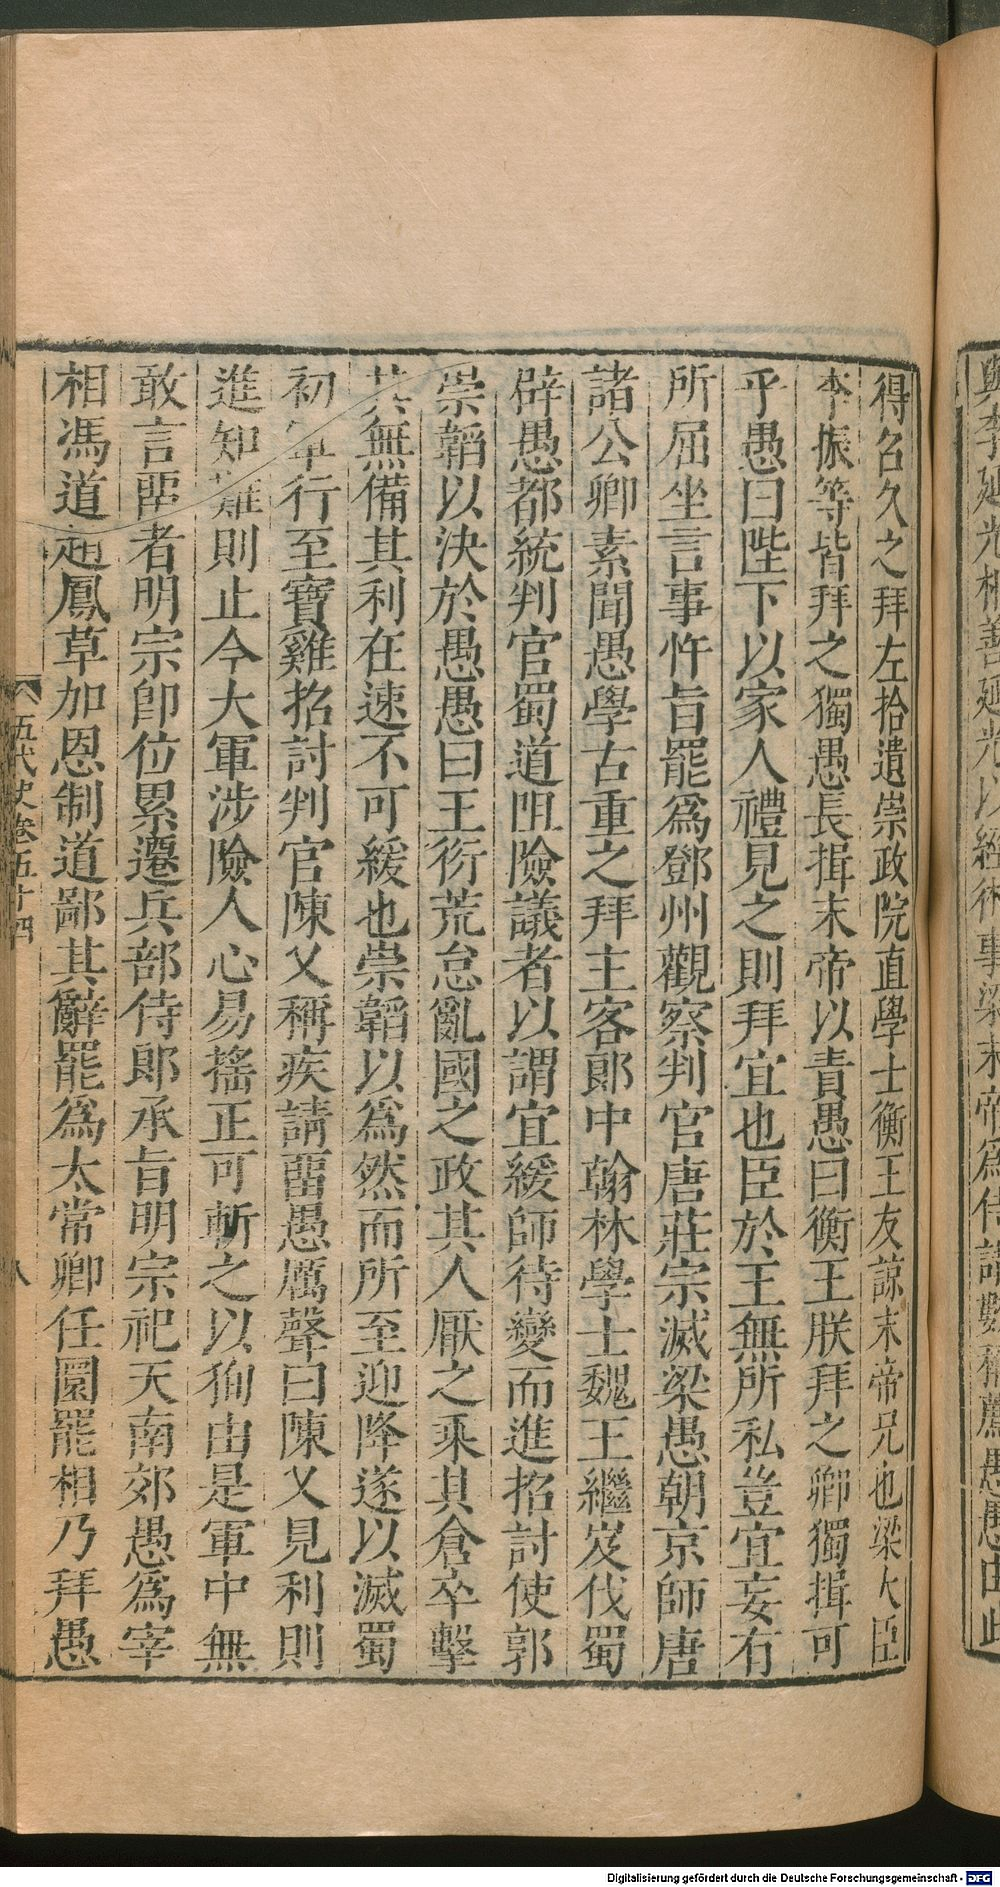 得召久之拜左拾遺崇政院直學士衡王友諒末帝兄也梁大臣
李振等皆拜之獨愚長揖末帝以責愚曰衡王朕拜之卿獨揖可
乎愚曰陛下以家人禮見之則拜宜也臣於王無所私豈宜妄有
所屈坐言事忤旨罷爲鄧州觀察判官唐莊宗滅梁愚朝京師唐
諸公卿素聞愚學古重之拜主客郞中翰林學士魏王繼岌伐蜀
辟愚都統判官蜀道阻險議者以謂宜緩師待變而進招討使郭
崇韜以決於愚愚曰王衍荒怠亂國之政其人厭之乘其倉卒擊
其無備其利在速不可緩也崇韜以爲然而所至迎降遂以滅蜀
初軍行至寶雞招討判官陳乂稱疾請畱愚厲聲曰陳乂見利則
進知難則止今大軍涉險人心易搖正可斬之以狥由是軍中無
敢言畱者明宗卽位累遷兵部侍郞承旨明宗祀天南郊愚爲宰
相馮道趙鳳草加恩制道鄙其辭罷爲太常卿任圜罷相乃拜愚
五代史卷五十四
八
與李延光相善延光以經術事梁末帝爲侍講數稱薦愚愚由此
Digitalisierung gefördert durch die Deutsche Forschungsgemeinschaft - DFG